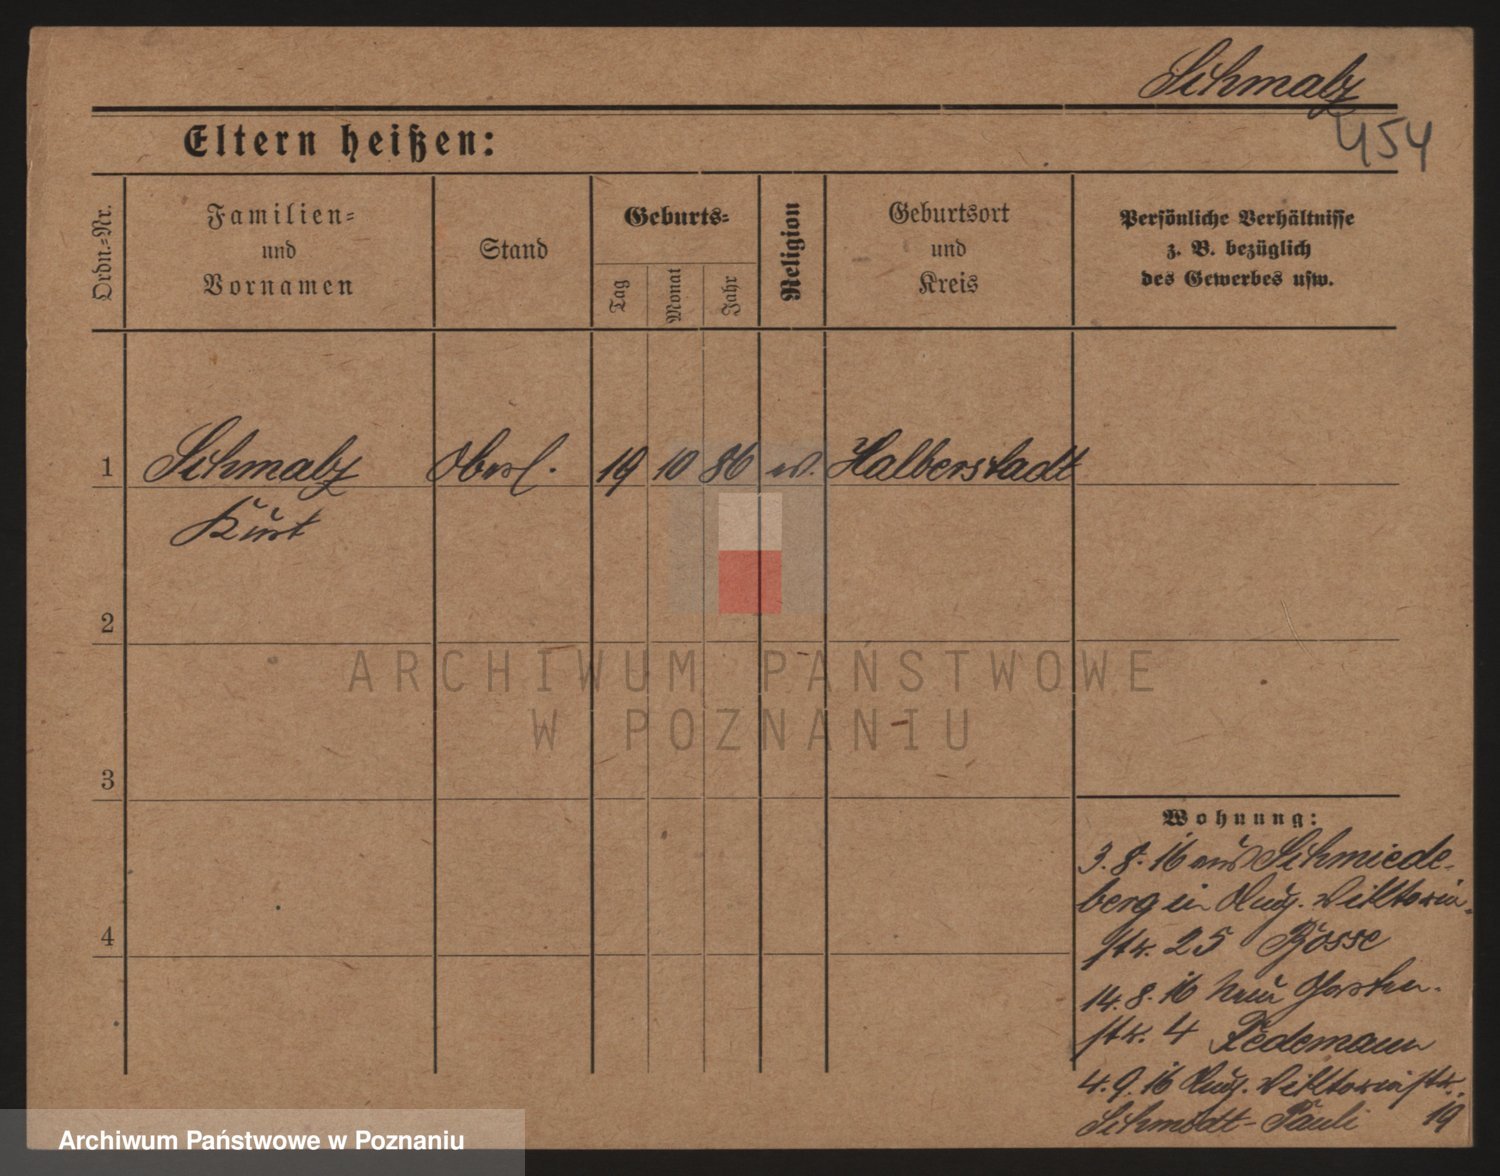 Schmalz
454
Eltern heißen:
Ordn.=Nr.
Familien=
und
Vornamen
Stand
Geburts=
Tag
Monat
Jahr
Religion
Geburtsort
und
Kreis
Persönliche Verhältnisse
z. B. bezüglich
des Gewerbes usw.
1
Schmalz
Kurt
Oberl.
19
10
86
ev.
Halberstadt
2
3
4
ARCHIWUM PAŃSTWOWE
W POZNANIU
Wohnung:
3. 8. 16 aus Schmiede-
berg in Aug. Viktoria-
str. 25 Bosse
14. 8. 16 Neue Garten-
str. 4 Tiedemann
4. 9. 16 Aug. Viktoriastr.
Schmidt-Pauli 19
Archiwum Państwowe w Poznaniu